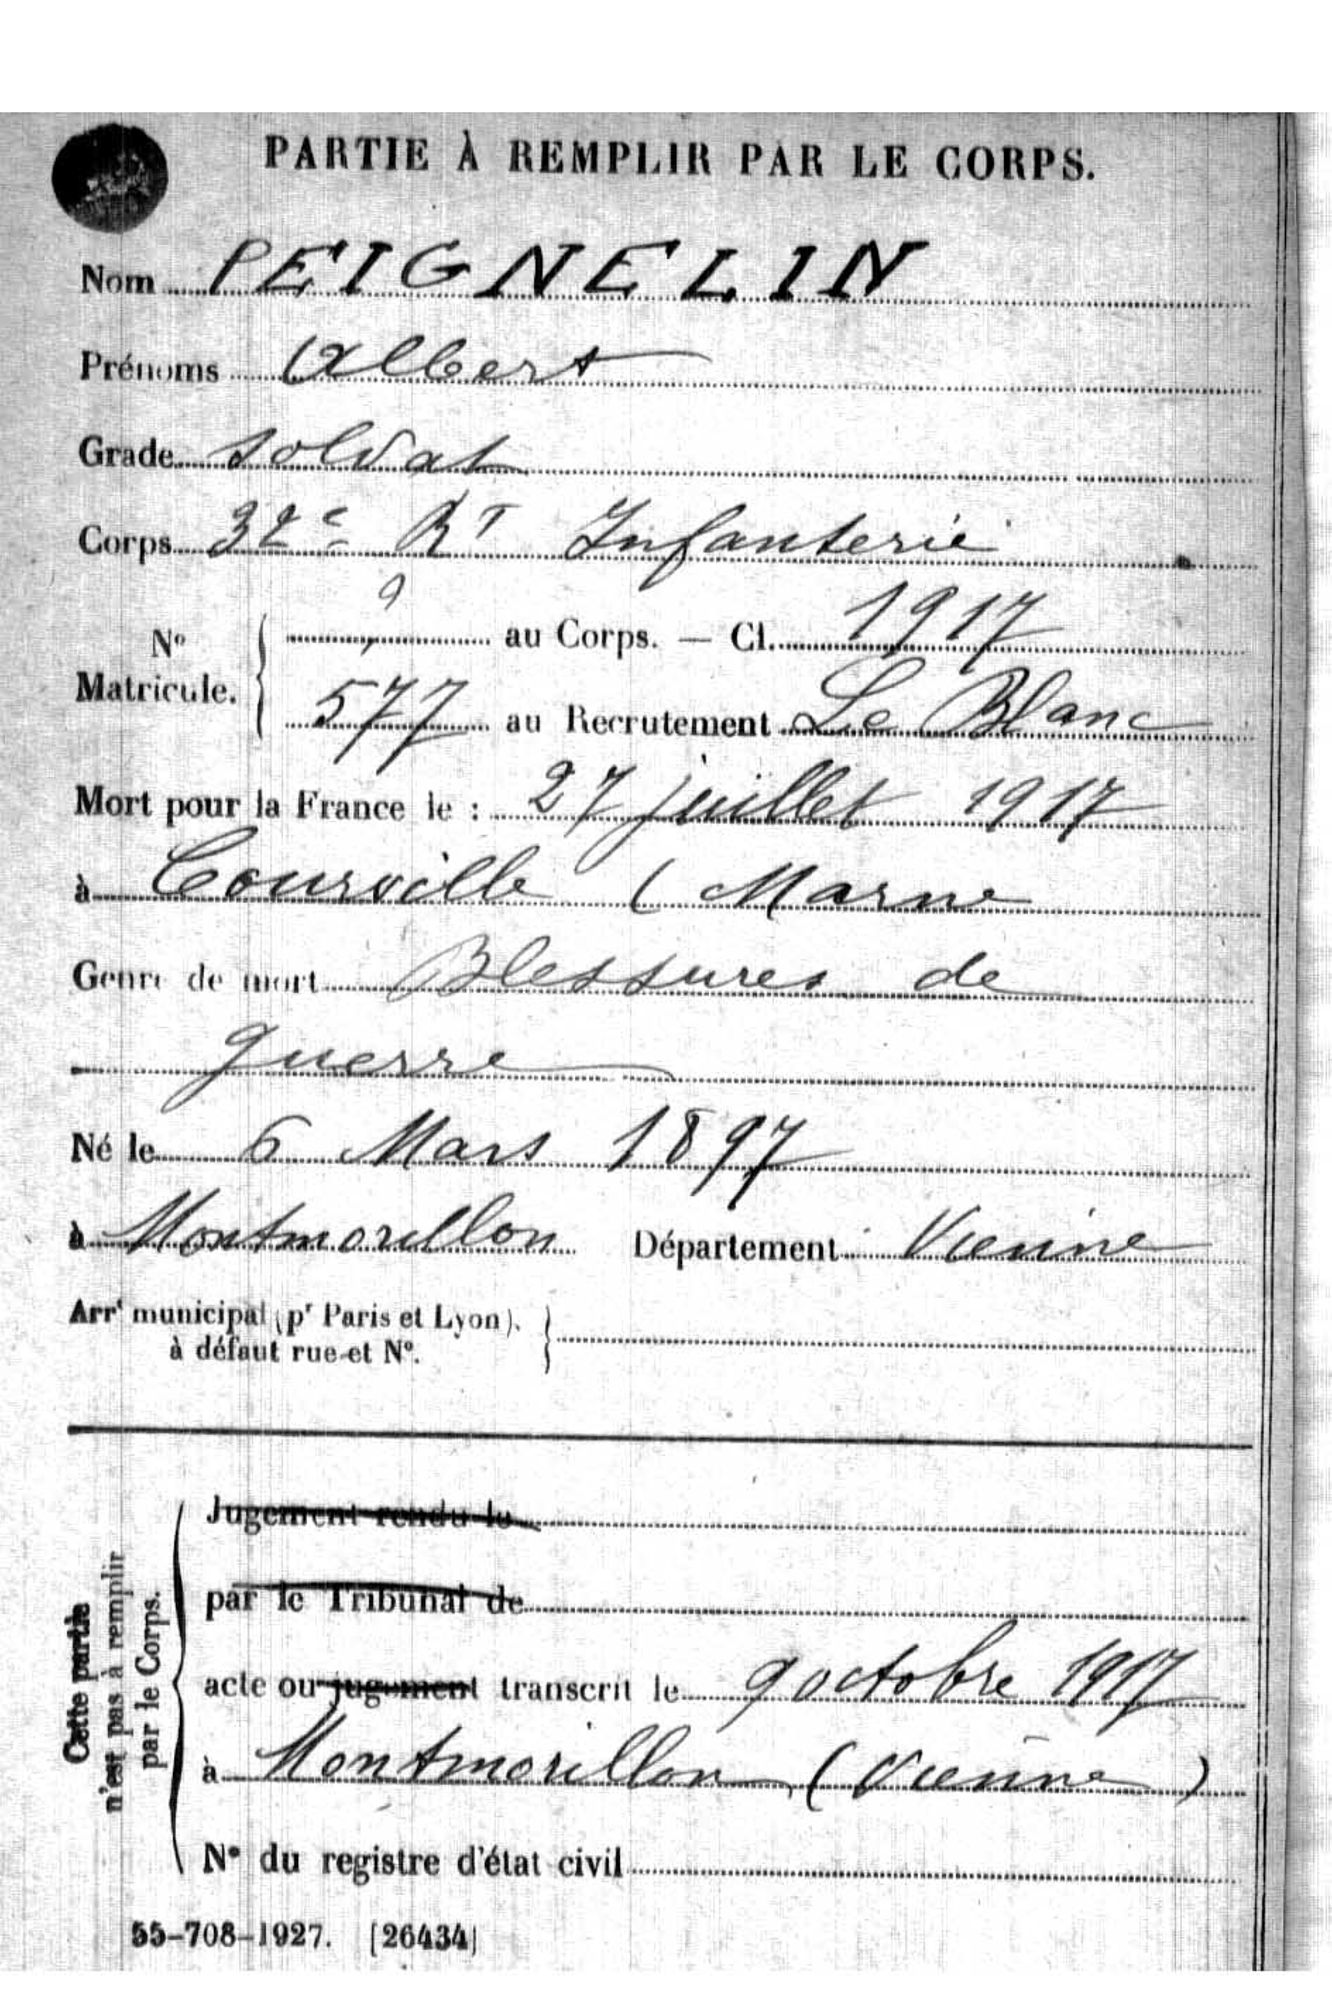 PARTIE À REMPLIR PAR LE CORPS.
Nom PEIGNELIN
Prénoms Albert
Grade soldat
Corps 32e Rt Infanterie
No Matricule. { ? au Corps. — Cl. 1917
577 au Recrutement Le Blanc
Mort pour la France le : 27 juillet 1917
à Courville (Marne
Genre de mort Blessures de
guerre
Né le 6 Mars 1897
à Montmorillon Département Vienne
Arrt municipal (pr Paris et Lyon), }
à défaut rue et No.
Cette partie
n'est pas à remplir
par le Corps.
Jugement rendu le
par le Tribunal de
acte ou jugement transcrit le 9 octobre 1917
à Montmorillon (Vienne)
No du registre d'état civil
55-708-1927. [26434]